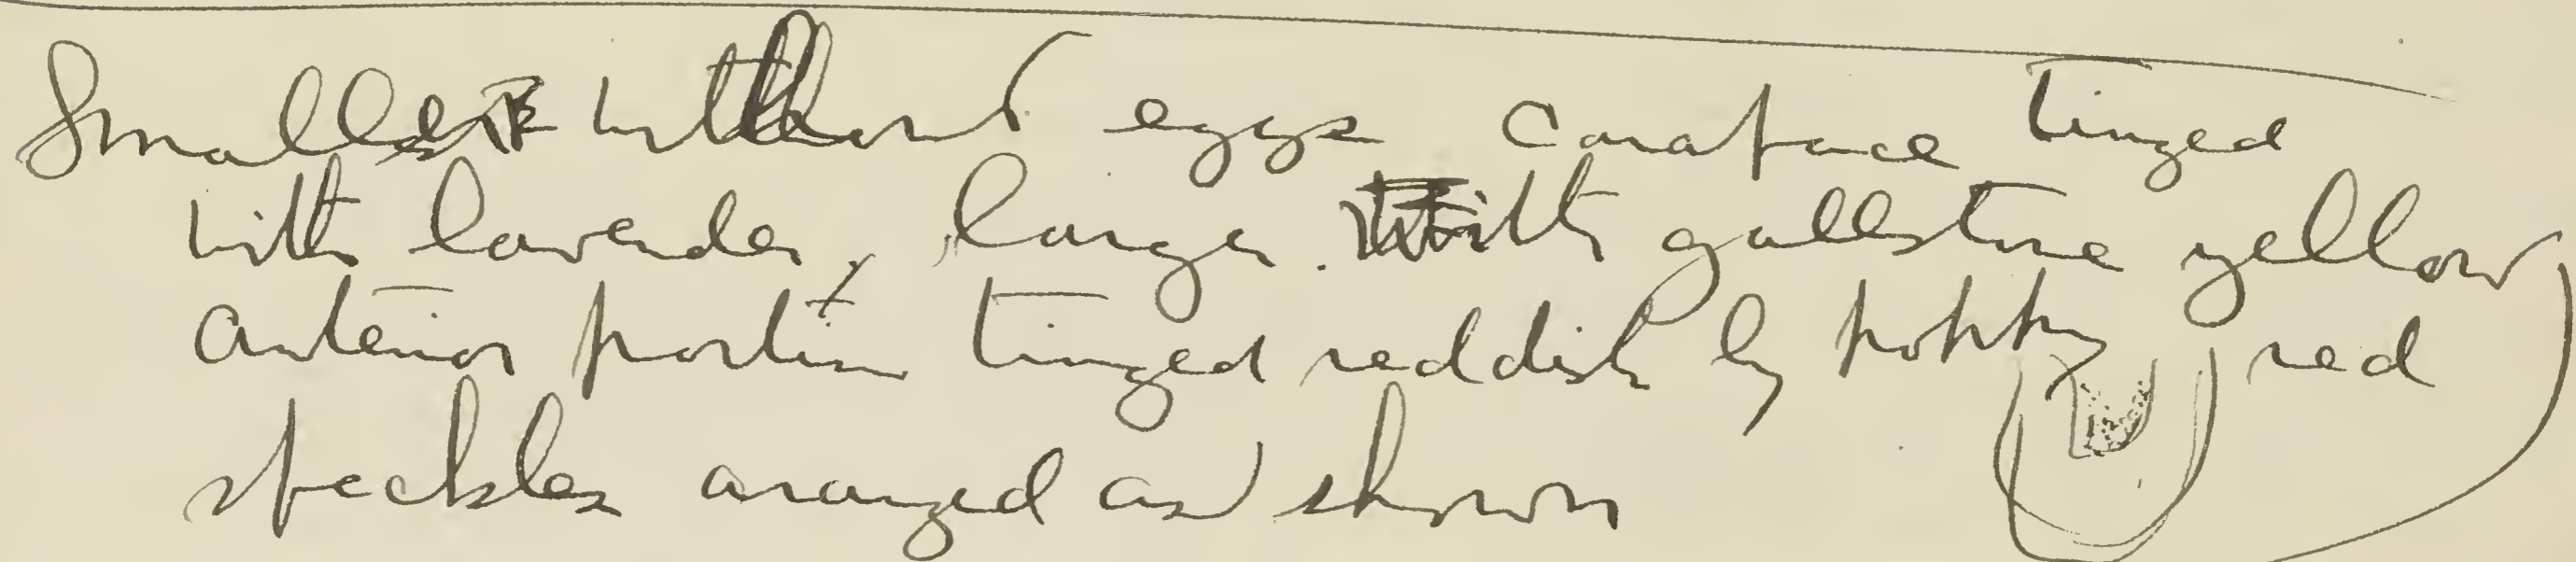 Smallest without eggs carapace tinged
with lavender, larger with gallstone yellow
anterior portion tinged reddish by poppy red
speckles arranged as shown